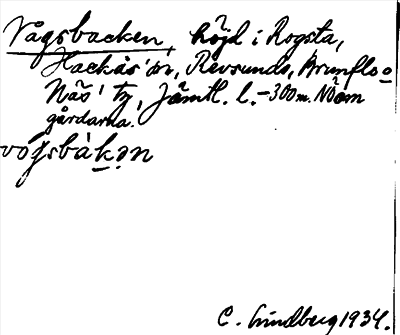 Vågsbacken, höjd i Rogsta,
Hackås' sn, Revsunds, Brunflo o
Näs' tg, Jämtl. l. - 300 m. NO om
gårdarna.
vógsbàkǝn
C. Lindberg 1934.